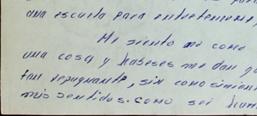 una escuela para entretenerme,
Me siento me como
una cosa y haseses me dan g
tan repugnante, sin conosimien
mis sentidos. como sei